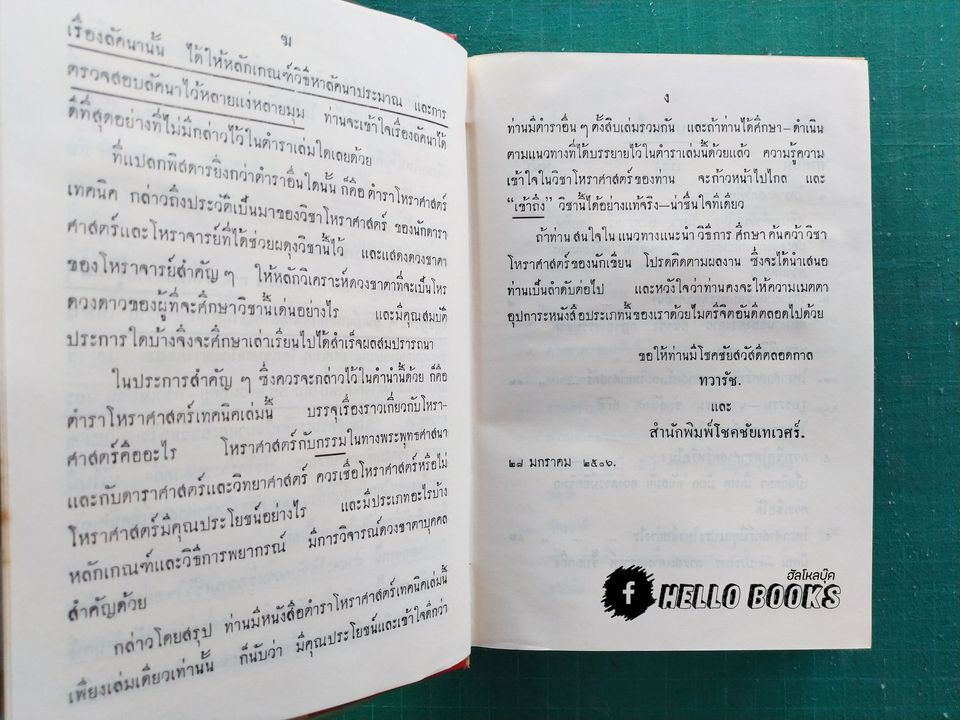 ฆ
เรื่องลัคนานั้น ได้ให้หลักเกณฑ์วิธีหาลัคนาประมาณ และการ
ตรวจสอบลัคนาไว้หลายแง่หลายมุม ท่านจะเข้าใจเรื่องลัคนาได้
ดีที่สุดอย่างที่ไม่มีกล่าวไว้ในตำราเล่มใดเลยด้วย
ที่แปลกพิสดารยิ่งกว่าตำราอื่นใดนั้น ก็คือ ตำราโหราศาสตร์
เทคนิค กล่าวถึงประวัติเป็นมาของวิชาโหราศาสตร์ ของนักดารา
ศาสตร์และโหราจารย์ที่ได้ช่วยผดุงวิชานี้ไว้ และแสดงดวงชาตา
ของโหราจารย์สำคัญ ๆ ให้หลักวิเคราะห์ดวงชาตาที่จะเป็นโหร
ดวงดาวของผู้ที่จะศึกษาวิชานี้เด่นอย่างไร และมีคุณสมบัติ
ประการใดบ้างจึงจะศึกษาเล่าเรียนไปได้สำเร็จผลสมปรารถนา
ในประการสำคัญ ๆ ซึ่งควรจะกล่าวไว้ในคำนำนี้ด้วย ก็คือ
ตำราโหราศาสตร์เทคนิคเล่มนี้ บรรจุเรื่องราวเกี่ยวกับโหรา-
ศาสตร์คืออะไร โหราศาสตร์กับกรรมในทางพระพุทธศาสนา
และกับดาราศาสตร์และวิทยาศาสตร์ ควรเชื่อโหราศาสตร์หรือไม่
โหราศาสตร์มีคุณประโยชน์อย่างไร และมีประเภทอะไรบ้าง
หลักเกณฑ์และวิธีการพยากรณ์ มีการวิจารณ์ดวงชาตาบุคคล
สำคัญด้วย
กล่าวโดยสรุป ท่านมีหนังสือตำราโหราศาสตร์เทคนิคเล่มนี้
เพียงเล่มเดียวเท่านั้น ก็นับว่า มีคุณประโยชน์และเข้าใจดีกว่า
ง
ท่านมีตำราอื่น ๆ ตั้งสิบเล่มรวมกัน และถ้าท่านได้ศึกษา–ดำเนิน
ตามแนวทางที่ได้บรรยายไว้ในตำราเล่มนี้ด้วยแล้ว ความรู้ความ
เข้าใจในวิชาโหราศาสตร์ของท่าน จะก้าวหน้าไปไกล และ
“เข้าถึง” วิชานี้ได้อย่างแท้จริง–น่าชื่นใจทีเดียว
ถ้าท่าน สนใจใน แนวทางแนะนำ วิธีการ ศึกษา ค้นคว้า วิชา
โหราศาสตร์ของนักเขียน โปรดติดตามผลงาน ซึ่งจะได้นำเสนอ
ท่านเป็นลำดับต่อไป และหวังใจว่าท่านคงจะให้ความเมตตา
อุปการะหนังสือประเภทนี้ของเราด้วยไมตรีจิตอันดีตลอดไปด้วย
ขอให้ท่านมีโชคชัยสวัสดีตลอดกาล
ทวารัช.
และ
สำนักพิมพ์โชคชัยเทเวศร์.
๒๘ มกราคม ๒๕๐๖.
ฮัลโหลบุ๊ค
f HELLO BOOKS